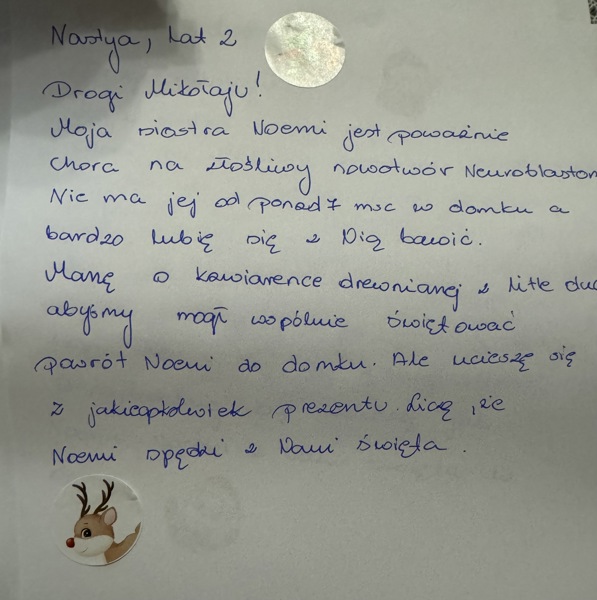 Nastya, Lat 2
Drogi Mikołaju!
Moja siastra Noemi jest poważnie
chora na złośliwy nowotwór Neuroblastom
Nie ma jej od ponad 7 msc w domku a
bardzo lubię się z Nią bawić.
Marzę o kawiarence drewnianej z litle du
abyśmy mogł wspólnie świętować
powrót Noemi do domku. Ale ucieszę się
z jakiegokolwiek prezentu. Liczę, że
Noemi spędzi z Nami święta.